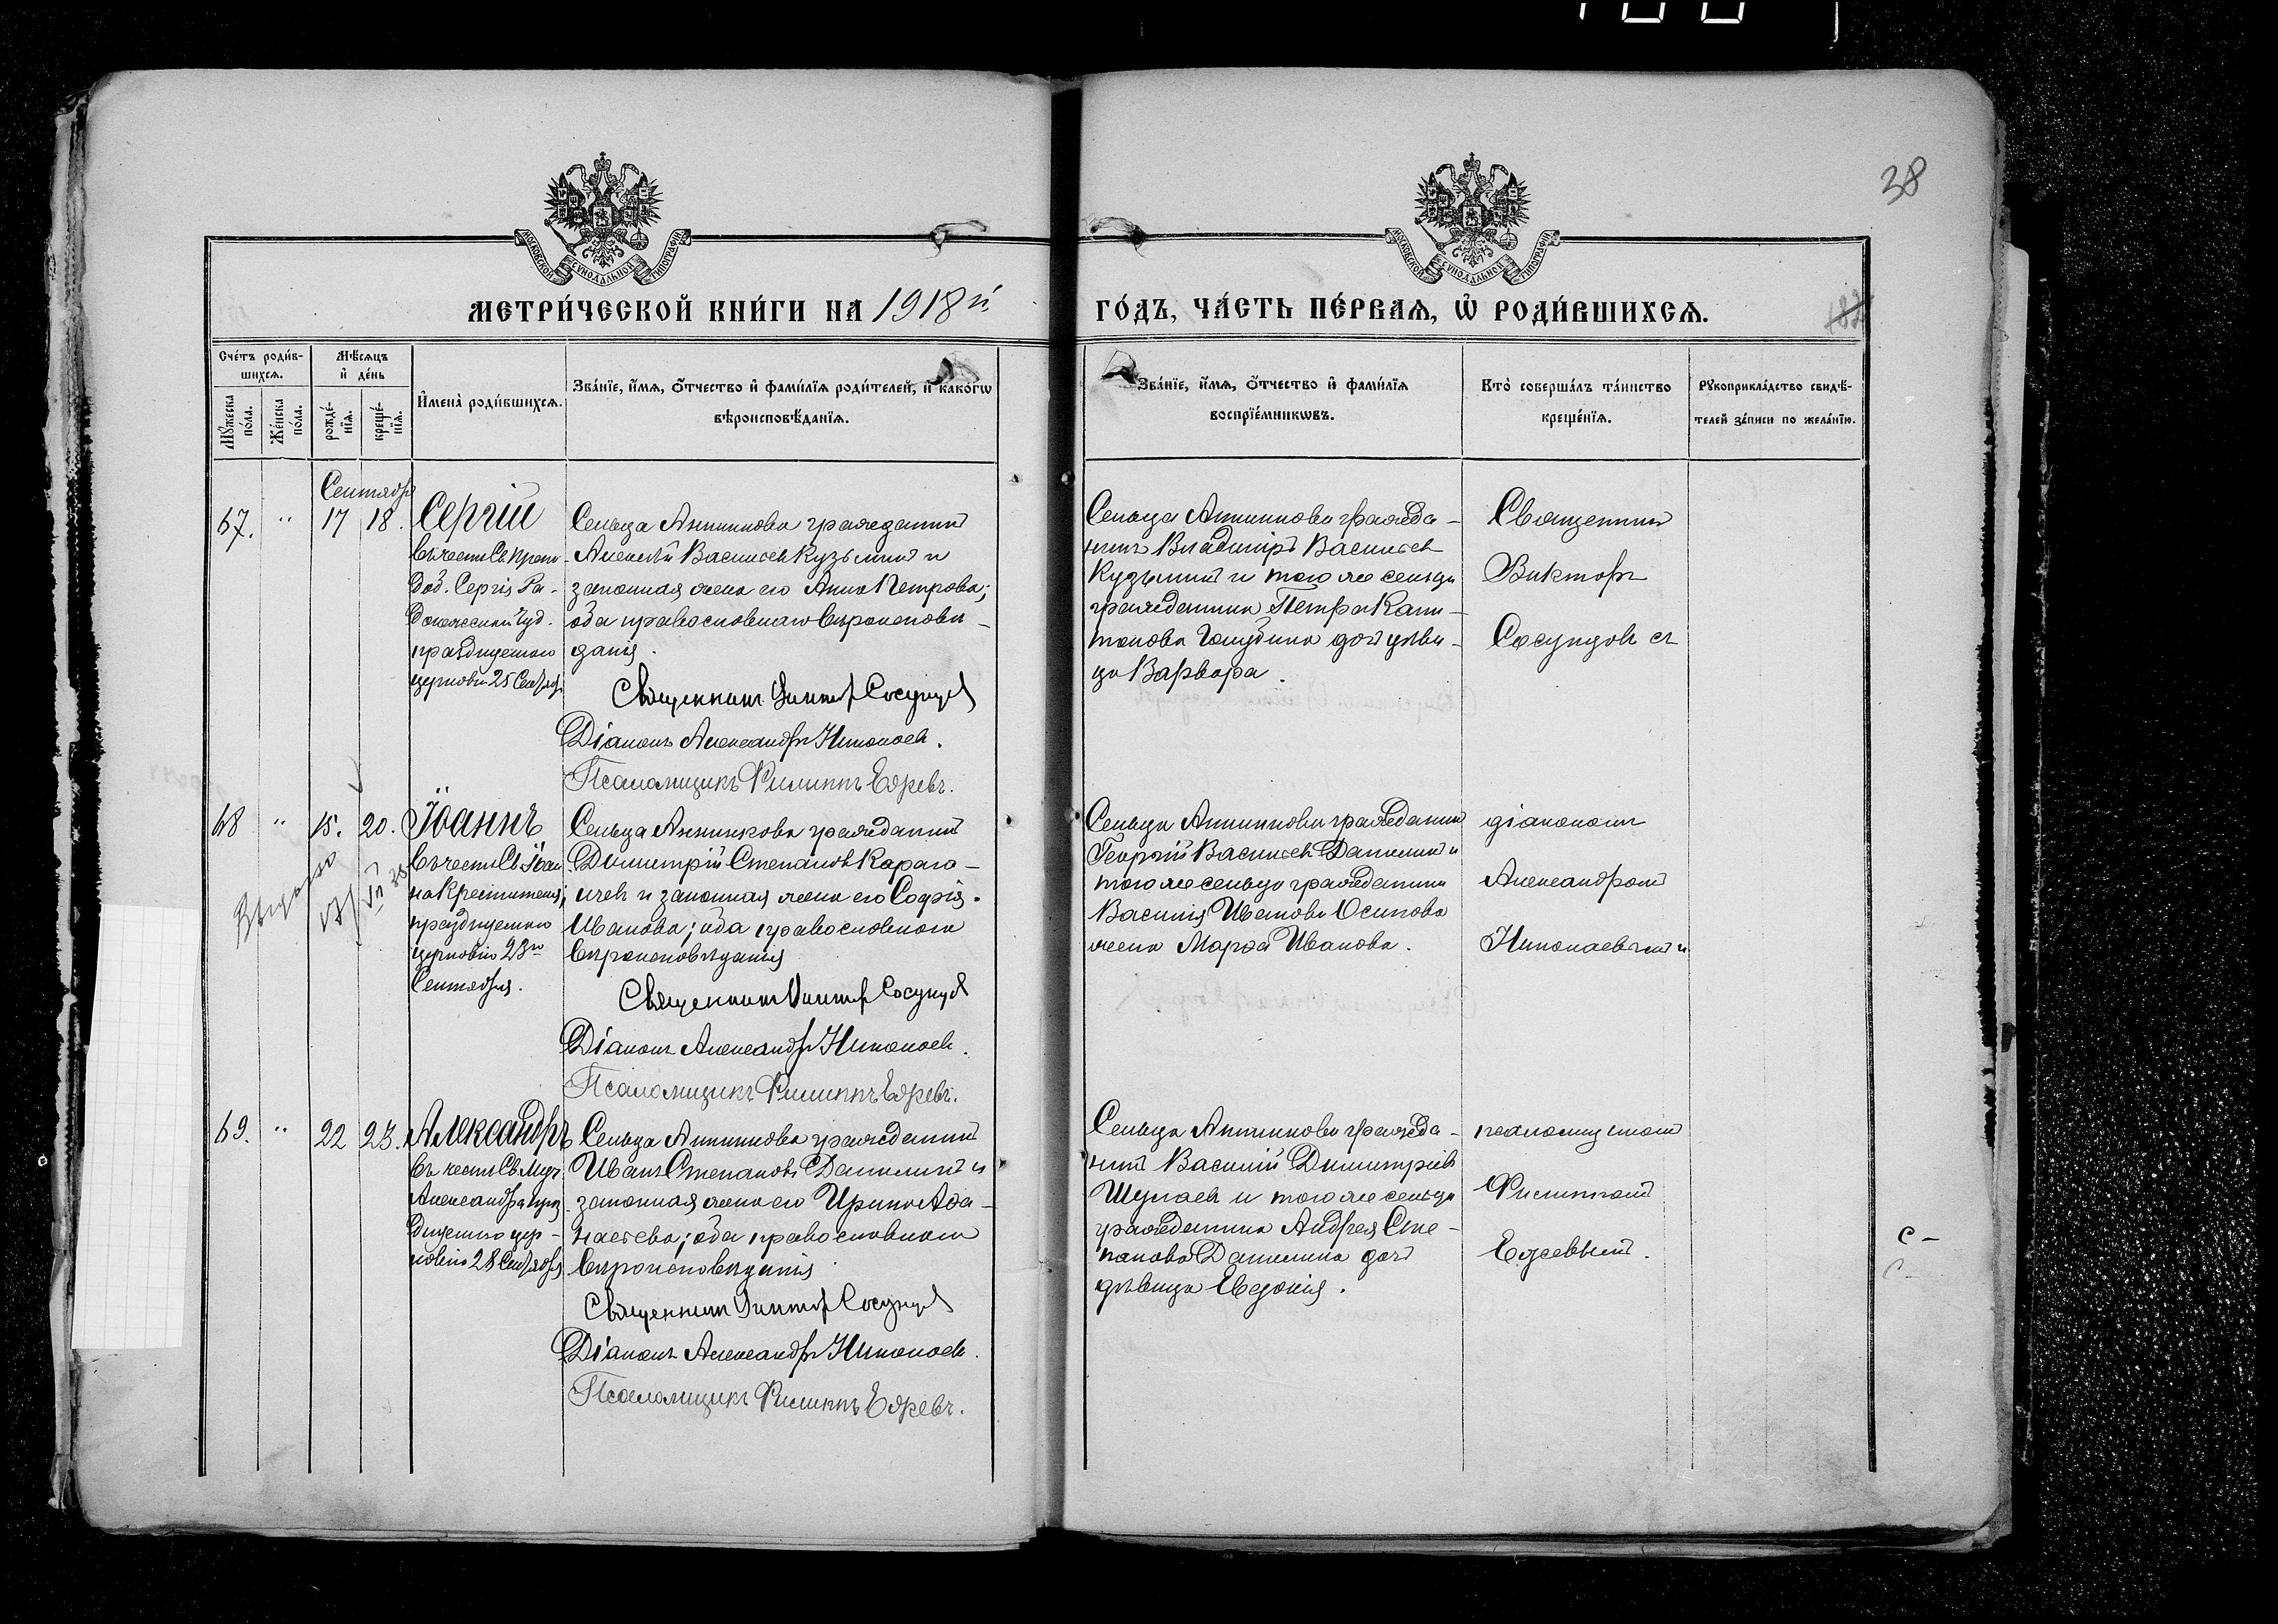 38
МОСКОВСКОЙ СѴНОДАЛЬНОЙ ТИПОГРАФІИ
МОСКОВСКОЙ СѴНОДАЛЬНОЙ ТИПОГРАФІИ
МЕТРИ́ЧЕСКОЙ КНИ́ГИ НА 1918 й
ГО́ДЪ, ЧА́СТЬ ПЕ́РВАѦ, Ѡ҆ РОДИ́ВШИХСѦ.
Сче́тъ роди́в-
шихсѧ.
Мꙋ́жеска по́ла.
Же́нска по́ла.
Мѣ́сѧцъ
и҆ де́нь
рожде́-
нїѧ.
креще́-
нїѧ.
И҆мена̀ роди́вшихсѧ.
Зва́нїе, и҆́мѧ, ѻ҆́тчество и҆ фами́лїѧ роди́телей, и҆ како́гѡ
вѣроисповѣ́данїѧ.
Зва́нїе, и҆́мѧ, ѻ҆́тчество и҆ фами́лїѧ
воспрїе́мникѡвъ.
Кто̀ соверша́лъ та́инство
креще́нїѧ.
Рꙋкоприкла́дство свидѣ́-
телей за́писи по жела́нїю.
Сентября
67. " 17 18. Сергій
въ честь Св. Препо-
доб. Сергія Ра-
донежскаго Чуд.
празднуемаго
церковію 25 Сентября
Сельца Анниикова гражданинъ
Алексѣй Васильевъ Кузьминъ и
законная жена его Анна Петрова;
оба православнаго вѣроисповѣ-
данія.
Священникъ Викторъ Сосунцовъ
Діаконъ Александръ Николаевъ.
Псаломщикъ Филиппъ Ефревъ.
Сельца Анниикова гражда-
нинъ Владиміръ Васильевъ
Кузьминъ и того же сельца
гражданина Петра Капи-
тонова Голубина дочь дѣви-
ца Варвара.
Священникъ
Викторъ
Сосунцовъ съ
68 " 15. 20. Іоаннъ
въ честь Св. Іоан-
на Крестителя;
празднуемаго
церковію 23го
Сентября.
Сельца Анниикова гражданинъ
Димитрій Степановъ Караго-
ичевъ и законная жена его Софія
Иванова; оба православнаго
вѣроисповѣданія
Священникъ Викторъ Сосунцовъ
Діаконъ Александръ Николаевъ.
Псаломщикъ Филиппъ Ефревъ.
Сельца Анниикова гражданинъ
Георгій Васильевъ Данилинъ и
того же сельца гражданина
Василія Иванова Осипова
жена Марфа Иванова.
діакономъ
Александромъ
Николаевымъ и
69. " 22 23. Александръ
въ честь Св. Муч.
Александра праз-
днуемаго цер-
ковію 28 Сентября
Сельца Анниикова гражданинъ
Иванъ Степановъ Данилинъ и
законная жена его Ирина Афа-
насьева; оба православнаго
вѣроисповѣданія
Священникъ Викторъ Сосунцовъ
Діаконъ Александръ Николаевъ.
Псаломщикъ Филиппъ Ефревъ.
Сельца Анниикова гражда-
нинъ Василій Димитріевъ
Шулаевъ и того же сельца
гражданина Андрея Сте-
панова Данилина дочь
дѣвица Евдокія.
псаломщикомъ
Филиппомъ